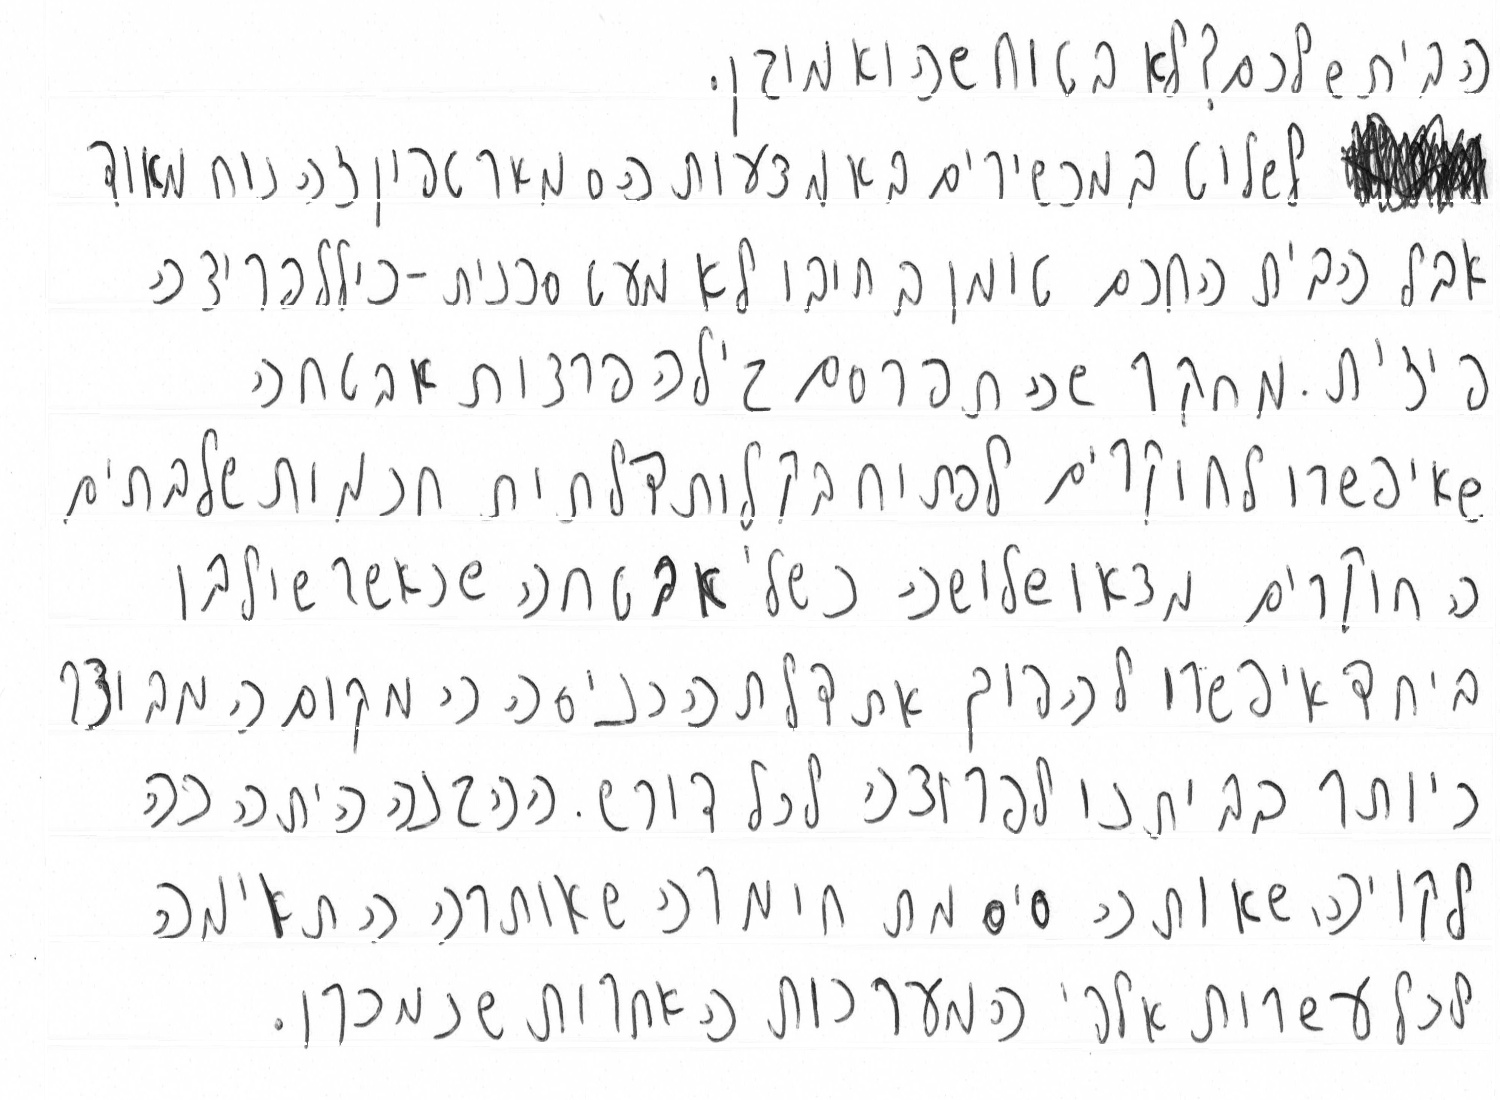 הבית שלכם? לא בטוח שהוא מוגן.
לשלוט במכשירים באמצעות הסמארטפון זה נוח מאוד
אבל הבית החכם טומן בחיבו לא מעט סכנית - כולל פריצה
פיזית. מחקר שהתפרסם גילה פרצות אבטחה
שאיפשרו לחוקרים לפתוח בקלות דלתית חכמות של בתים
החוקרים מצאו שלושה כשלי אבטחה שכאשר שולבו
ביחד איפשרו להפוך את דלת הכניסה המקום המבוצר
ביותר בביתנו לפרוצה לכל דורש. ההגנה היתה כה
לקויה, שאותה סיסמת חומרה שאותרה התאימה
לכל עשרות אלפי המערכות האחרות שנמכרו.